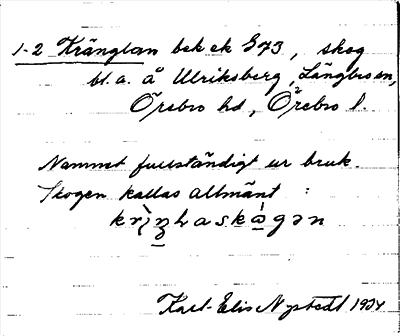 1-2 Kränglan bek ek S73, skog
bl. a. å Ulriksberg, Längbro sn,
Örebro hd, Örebro l.
Namnet fullständigt ur bruk.
Skogen kallas allmänt :
Karl-Elis Nystedt 1934